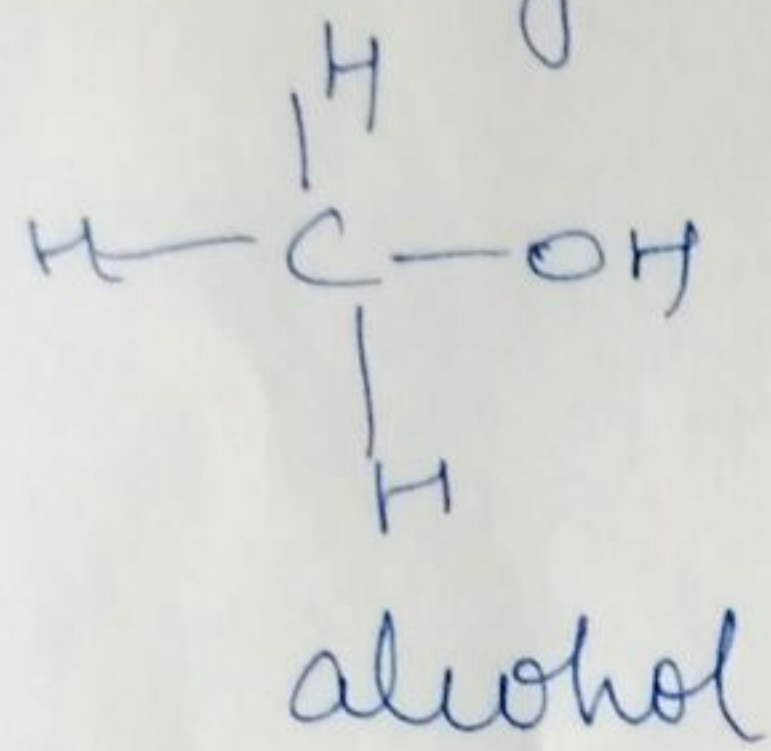 H
H - C - OH
H
alcohol